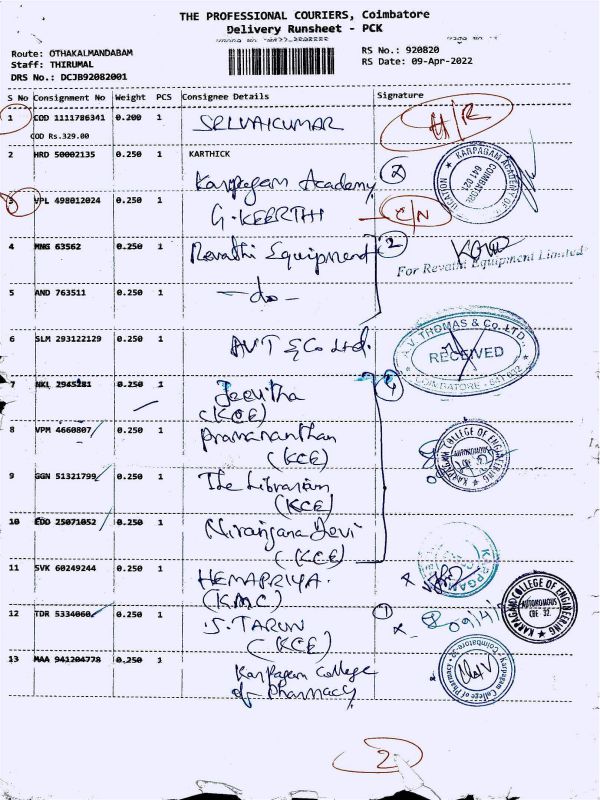 THE PROFESSIONAL COURIERS, Coimbatore
Delivery Runsheet - PCK
Route: OTHAKALMANDABAM
Staff: THIRUMAL
DRS No.: DCJB92082001
RS No.: 920820
RS Date: 09-Apr-2022
S No Consignment No Weight PCS Consignee Details Signature
1 COD 1111786341 0.200 1 SELVAKUMAR H/R
COD Rs.329.00
2 HRD 50002135 0.250 1 KARTHICK
Karpagam Academy 2
KARPAGAM ACADEMY OF COIMBATORE 641 021
3 VPL 498012024 0.250 1 G. KEERTHI C/N
4 MNG 63562 0.250 1 Revathi Equipment 2
For Revathi Equipment Limited
5 AND 763511 0.250 1 -do-
6 SLM 293122129 0.250 1 AVT & Co Ltd.
A.V. THOMAS & Co. LTD., RECEIVED COIMBATORE - 641 032
7 NKL 2945281 0.250 1 Jeevitha 4
(KCE)
8 VPM 4660807 0.250 1 Pramananthan
(KCE)
KARPAGAM COLLEGE OF ENGINEERING
9 GGN 51321799 0.250 1 The Librarian
(KCE)
10 EDD 25071052 0.250 1 Niranjana Devi
(KCE)
KARPAGAM
11 SVK 60249244 0.250 1 HEMAPRIYA.
(KMC)
KARPAGAM COLLEGE OF ENGINEERING AUTONOMOUS COE 32
12 TDR 5334060 0.250 1 S. TARUN 1
(KCE)
09/4/
13 MAA 941204778 0.250 1 Karpagam College
of Pharmacy
Karpagam College of Pharmacy Coimbatore-32
2